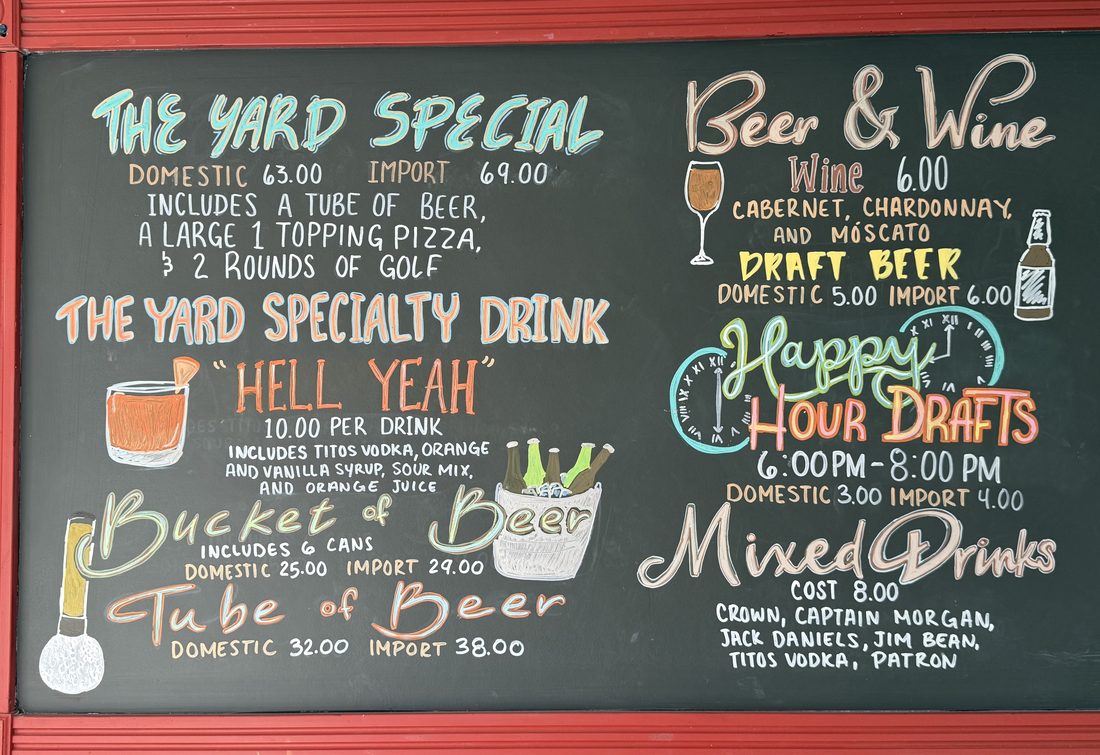 THE YARD SPECIAL
DOMESTIC 63.00 IMPORT 69.00
INCLUDES A TUBE OF BEER,
A LARGE 1 TOPPING PIZZA,
& 2 ROUNDS OF GOLF
THE YARD SPECIALTY DRINK
"HELL YEAH"
10.00 PER DRINK
INCLUDES TITOS VODKA, ORANGE
AND VANILLA SYRUP, SOUR MIX,
AND ORANGE JUICE
Bucket of Beer
INCLUDES 6 CANS
DOMESTIC 25.00 IMPORT 29.00
Tube of Beer
DOMESTIC 32.00 IMPORT 38.00
Beer & Wine
Wine 6.00
CABERNET, CHARDONNAY,
AND MÓSCATO
DRAFT BEER
DOMESTIC 5.00 IMPORT 6.00
Happy
HOUR DRAFTS
6:00PM-8:00 PM
DOMESTIC 3.00 IMPORT 4.00
Mixed Drinks
COST 8.00
CROWN, CAPTAIN MORGAN,
JACK DANIELS, JIM BEAN,
TITOS VODKA, PATRON